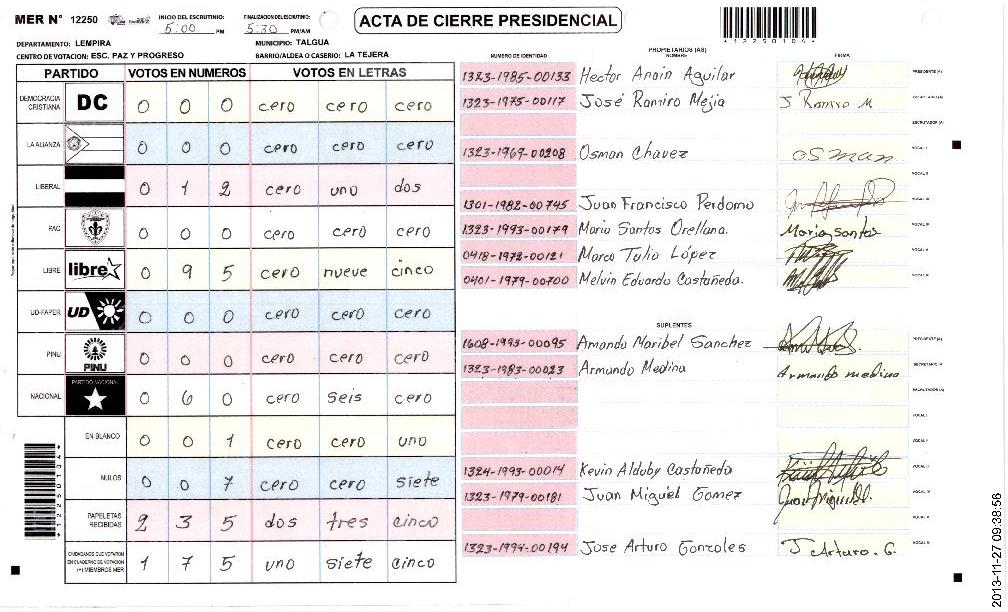 MER N° 12250
INICIO DEL ESCRUTINIO: 5:00 PM
FINALIZACION DEL ESCRUTINIO: 5:30 PM/AM
ACTA DE CIERRE PRESIDENCIAL
*12250104*
DEPARTAMENTO: LEMPIRA
MUNICIPIO: TALGUA
CENTRO DE VOTACION: ESC. PAZ Y PROGRESO
BARRIO/ALDEA O CASERIO: LA TEJERA
PARTIDO VOTOS EN NUMEROS VOTOS EN LETRAS
DEMOCRACIA CRISTIANA DC 0 0 0 cero cero cero
LA ALIANZA 0 0 0 cero cero cero
LIBERAL 0 1 2 cero uno dos
PAC 0 0 0 cero cero cero
LIBRE libre 0 9 5 cero nueve cinco
UD-FAPER UD 0 0 0 cero cero cero
PINU PINU 0 0 0 cero cero cero
NACIONAL PARTIDO NACIONAL 0 6 0 cero seis cero
EN BLANCO 0 0 1 cero cero uno
NULOS 0 0 7 cero cero siete
PAPELETAS RECIBIDAS 2 3 5 dos tres cinco
CIUDADANOS QUE VOTARON EN CUADERNO DE VOTACION (+) MIEMBROS MER 1 7 5 uno siete cinco
*12250104*
PROPIETARIOS (AS)
NUMERO DE IDENTIDAD NOMBRE FIRMA
1323-1985-00133 Hector Anain Aguilar PRESIDENTE (A)
1323-1975-00117 José Ramiro Mejia J Ramiro M. SECRETARIO (A)
ESCRUTADOR (A)
1323-1969-00208 Osman Chavez OSMAN VOCAL I
VOCAL II
1301-1982-00745 Juan Francisco Perdomo VOCAL III
1323-1993-00179 Mario Santos Orellana. Mario santos
0418-1972-00121 Marco Tulio López
0401-1979-00700 Melvin Eduardo Castañeda.
SUPLENTES
1608-1993-00095 Amanda Maribel Sanchez PRESIDENTE (A)
1323-1983-00023 Armando Medina Armando medina SECRETARIO (A)
ESCRUTADOR (A)
VOCAL I
VOCAL II
1324-1993-00014 Kevin Alduby Castañeda VOCAL III
1323-1979-00181 Juan Miguel Gomez Juan Miguel G. VOCAL IV
VOCAL V
1323-1994-00194 Jose Arturo Gonzales J Arturo. G.
2013-11-27 09:38:56